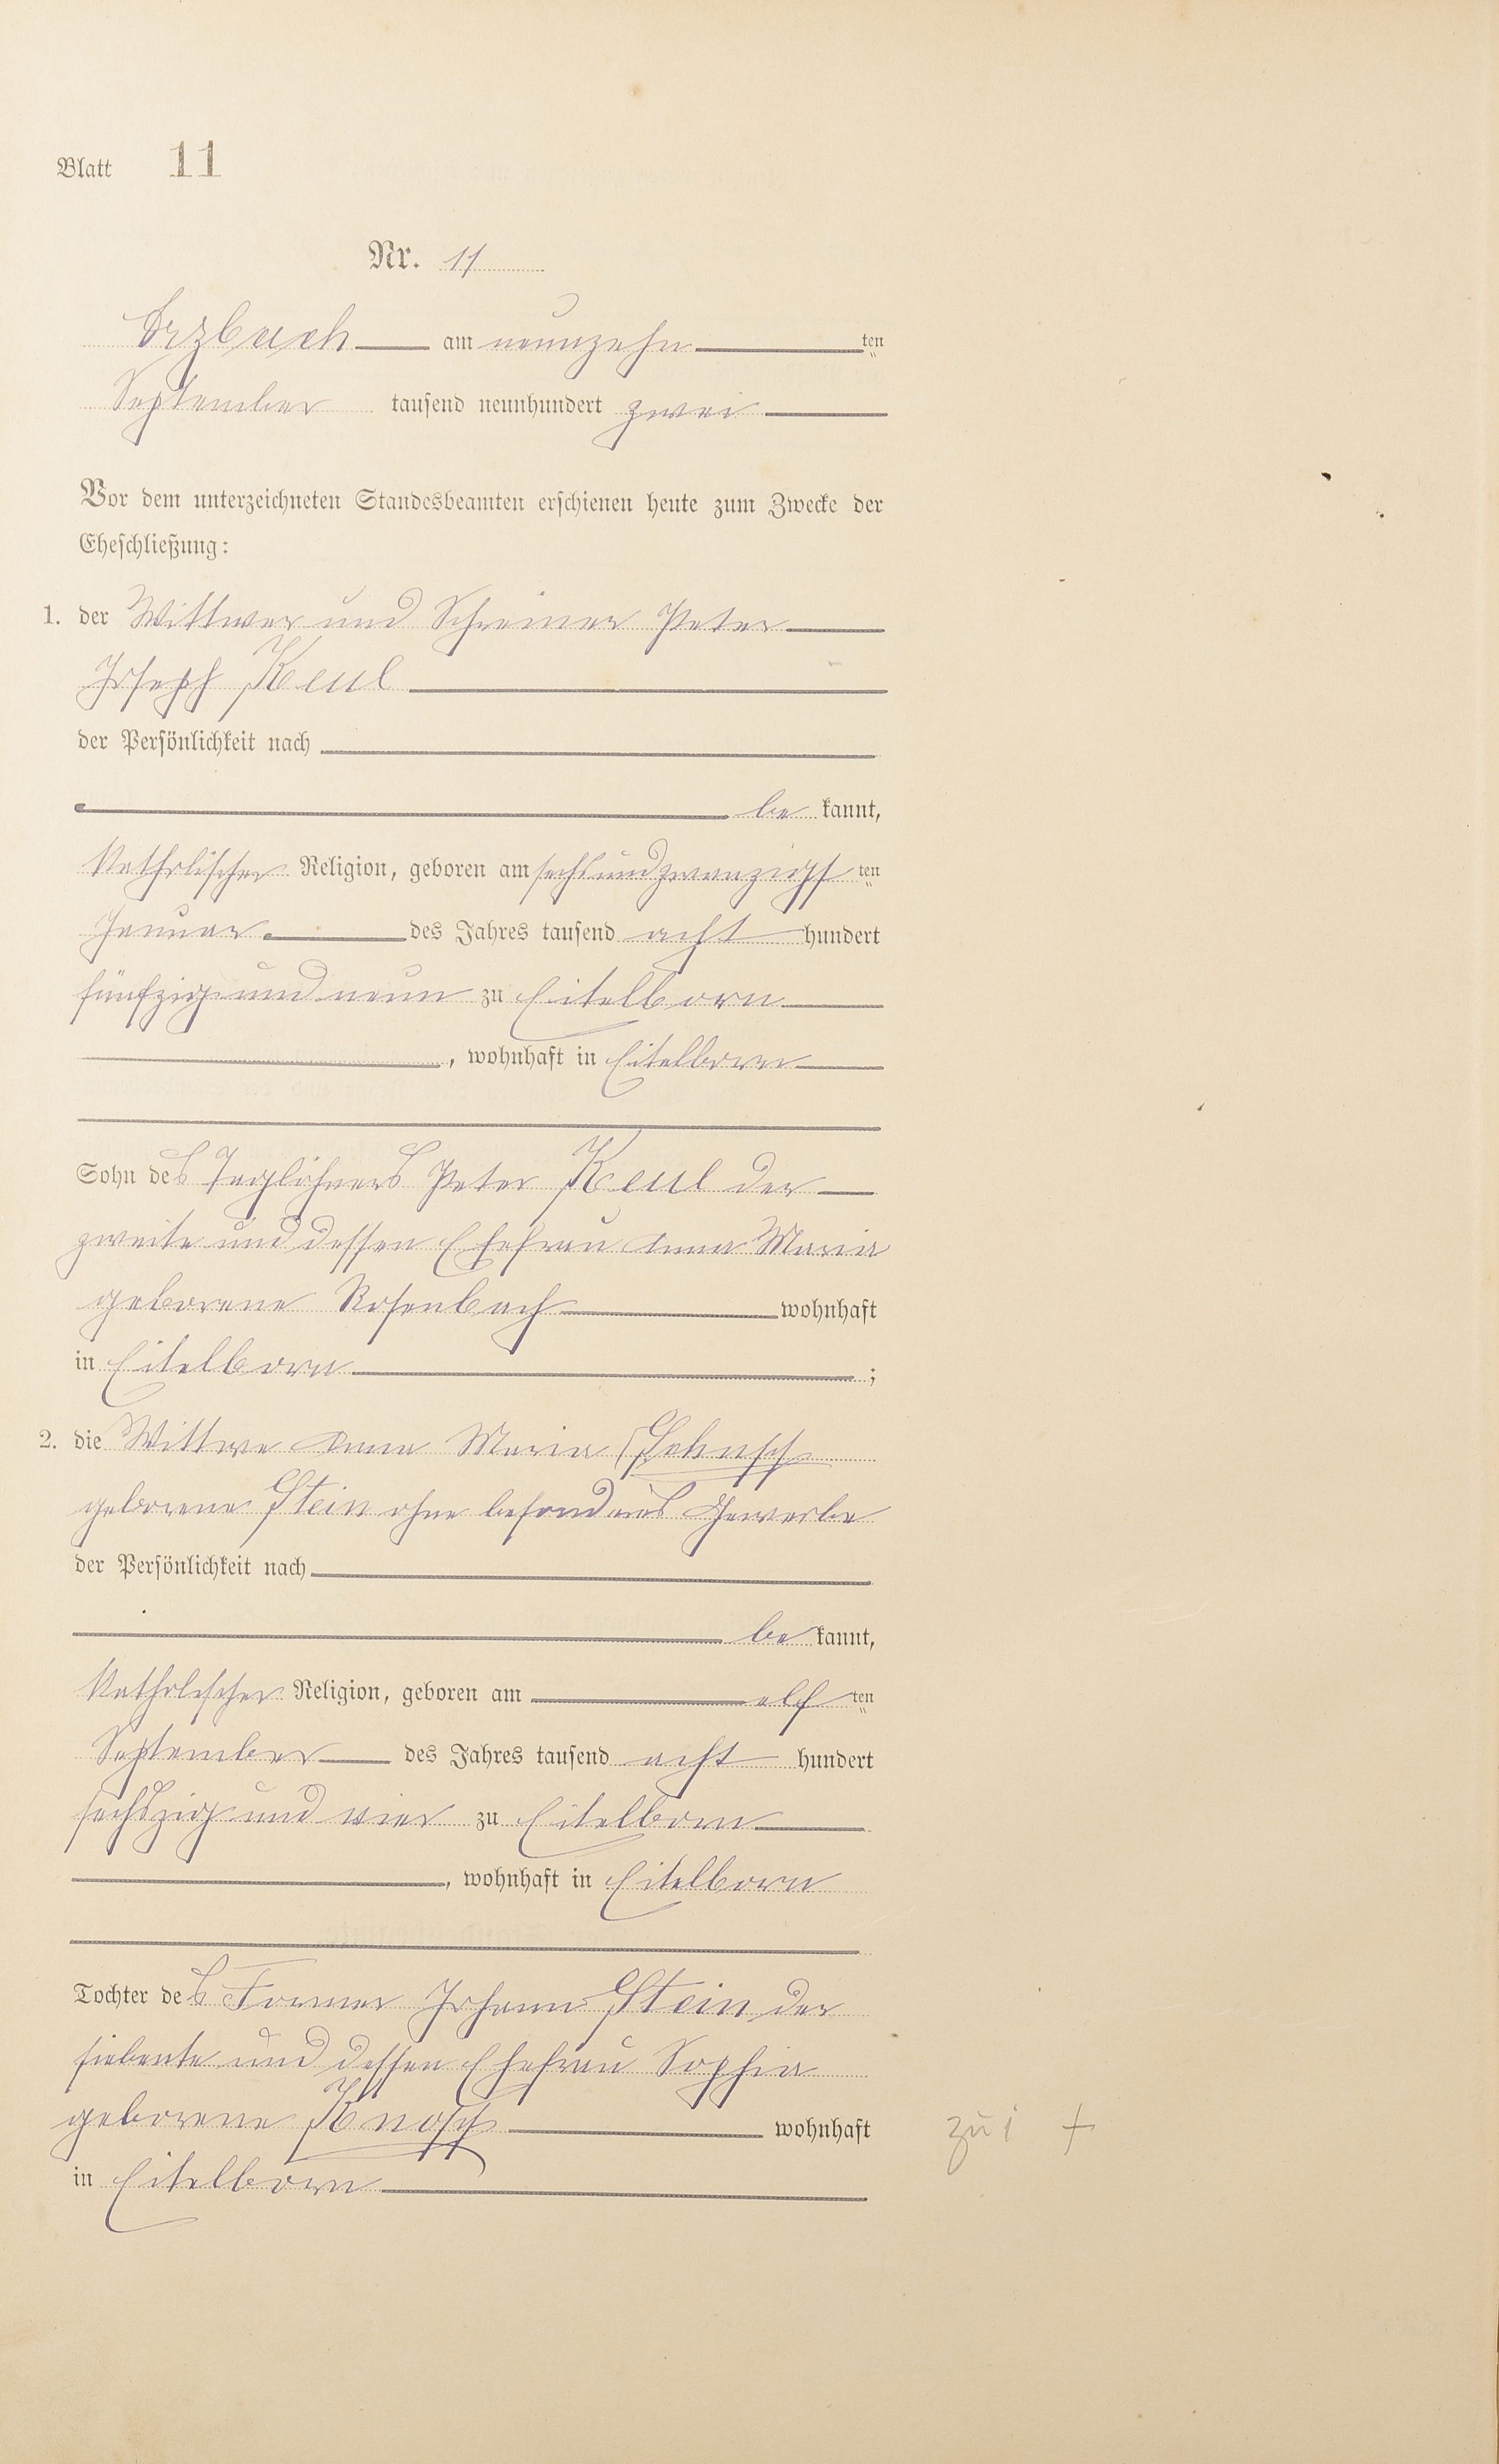 Blatt 11
Nr. 11
Arzbach am neunzehnten
September tausend neunhundert zwei
Vor dem unterzeichneten Standesbeamten erschienen heute zum Zwecke der
Eheschließung:
1. der Wittwer und Schreiner Peter
Joseph Keul
der Persönlichkeit nach
be kannt,
katholischer Religion, geboren am sechsundzwanzigsten
Januar des Jahres tausend acht hundert
fünfzig und neun zu Eitelborn
, wohnhaft in Eitelborn
Sohn des Taglöhners Peter Keul der
zweite und dessen Ehefrau Anna Maria
geborene Rosenbach wohnhaft
in Eitelborn ;
2. die Wittwe Anna Maria
geborene Stein ohne besonderes Gewerbe
der Persönlichkeit nach
be kannt,
katholischer Religion, geboren am elften
September des Jahres tausend acht hundert
sechszig und vier zu Eitelborn
, wohnhaft in Eitelborn
Tochter des Former Johann Stein der
siebente und dessen Ehefrau Sophia
geborene wohnhaft
in Eitelborn